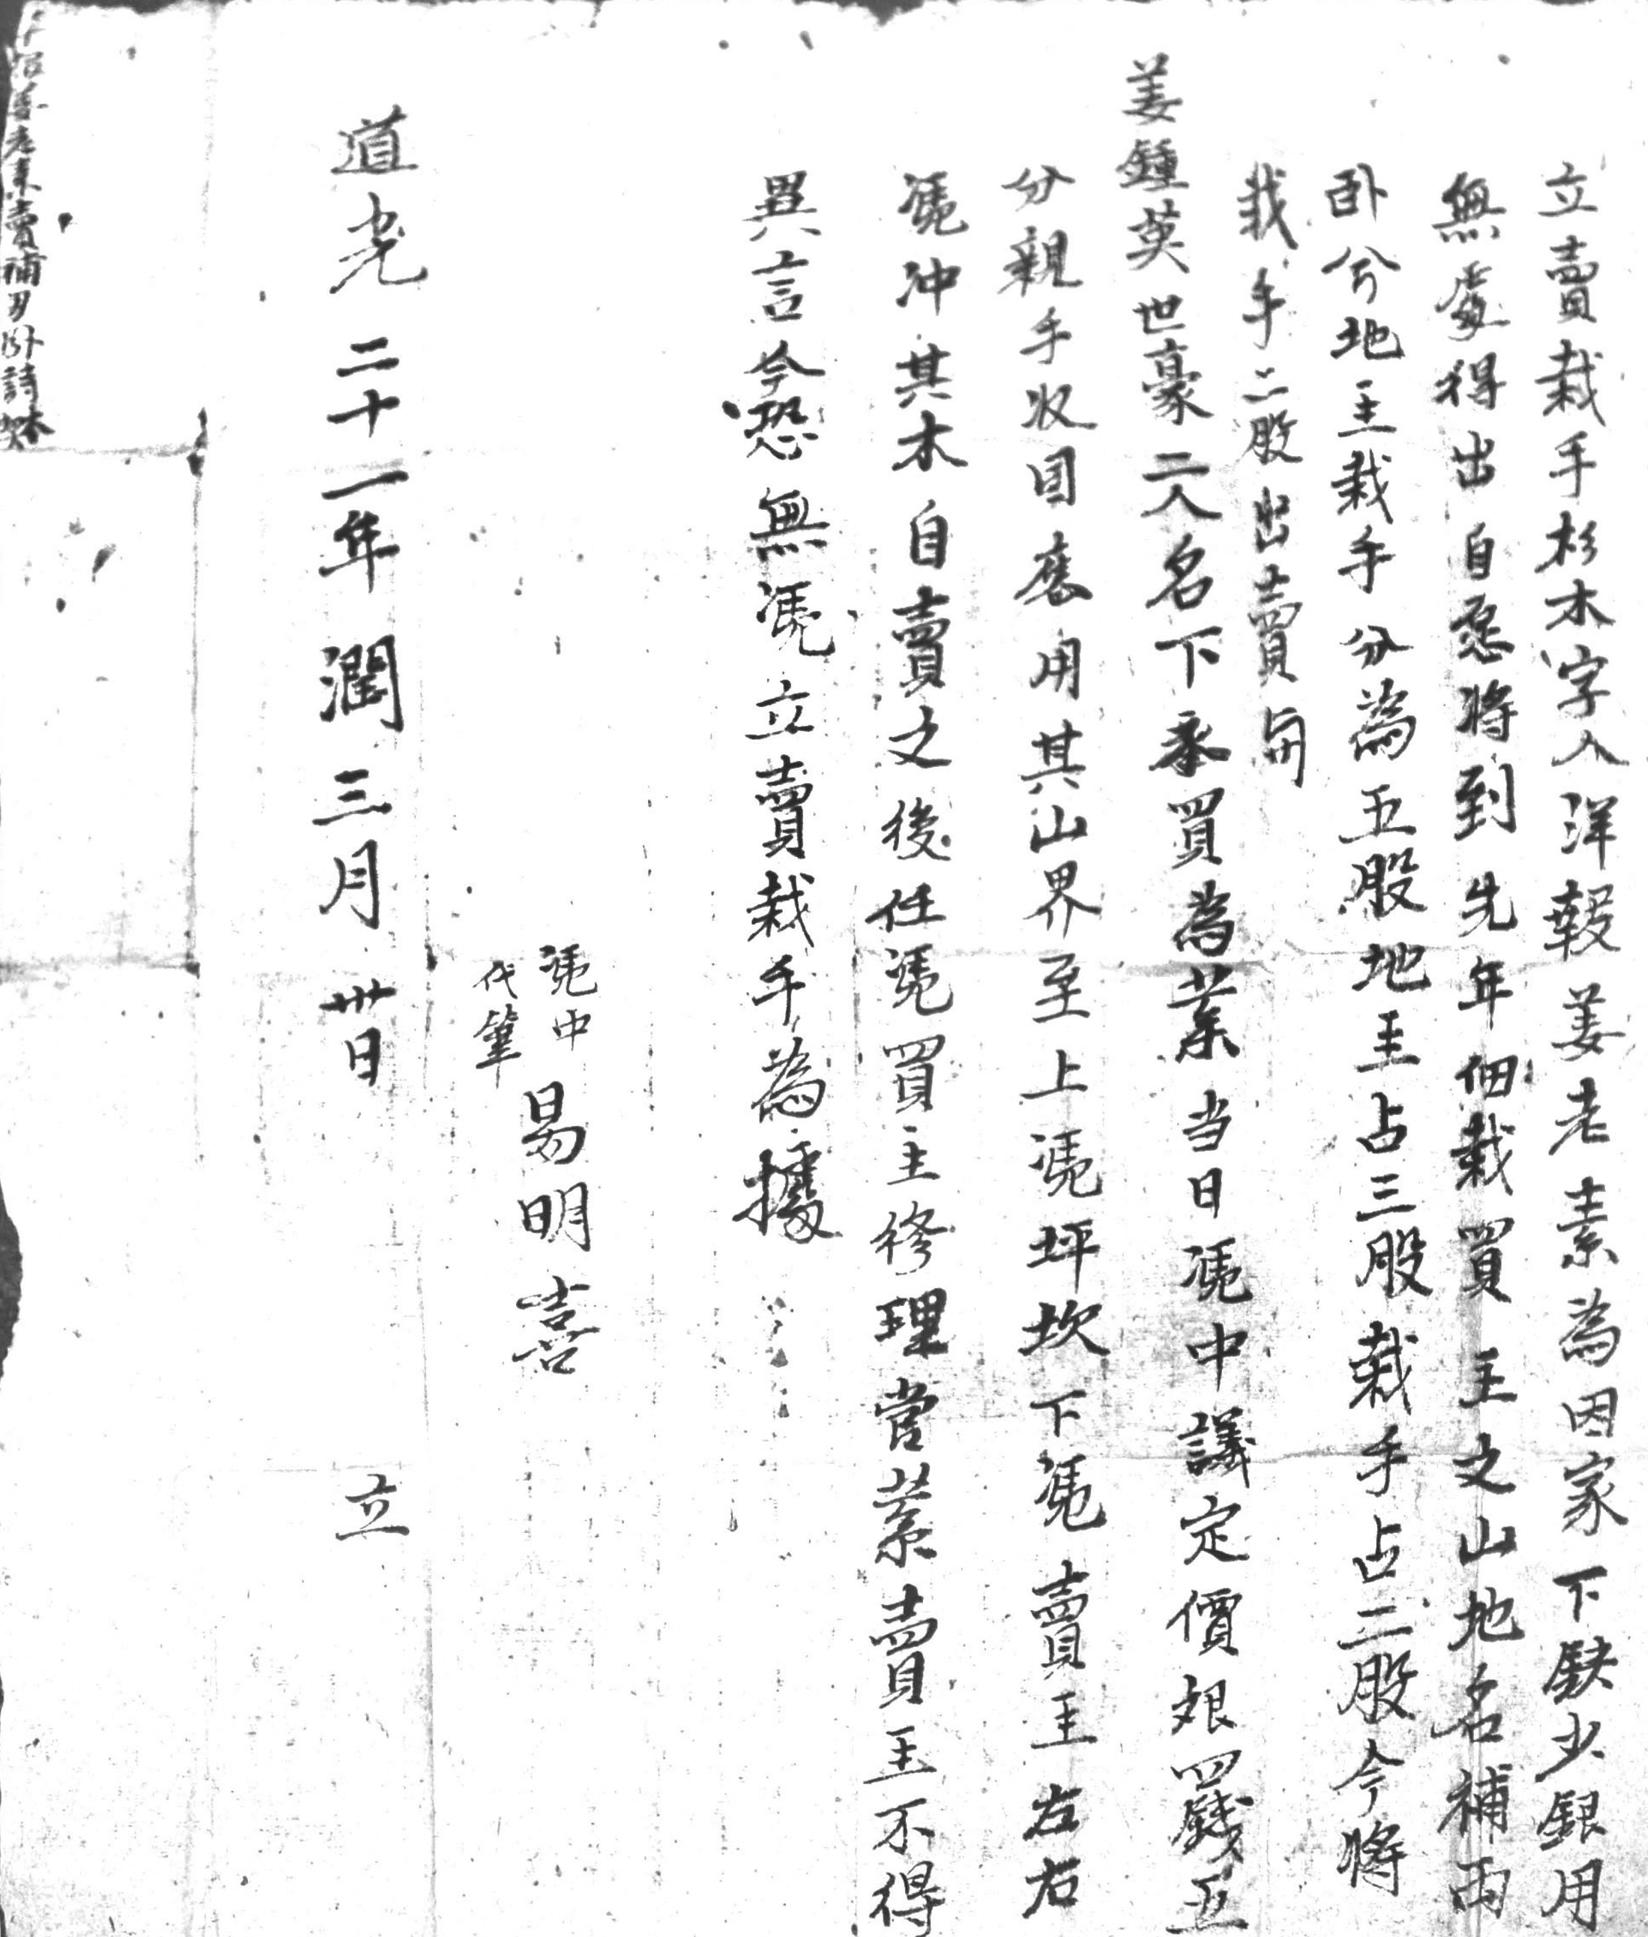 立賣栽手杉木字人洋報姜老素為因家下缺少銀用
無處得出自愿將到先年佃栽買主之山地名補两
卧兮地主栽手分為五股地主占三股栽手占二股今將
栽手二股出賣与
姜鍾英世豪二人名下承買為業当日憑中議定價銀四錢五
分親手收回應用其山界至上憑坪坎下憑賣主左右
憑冲其木自賣之後任憑買主修理管業賣主不得
異言今恐無憑立賣栽手為據
憑中
代筆
易明喜
道光二十一年潤三月卅日 立